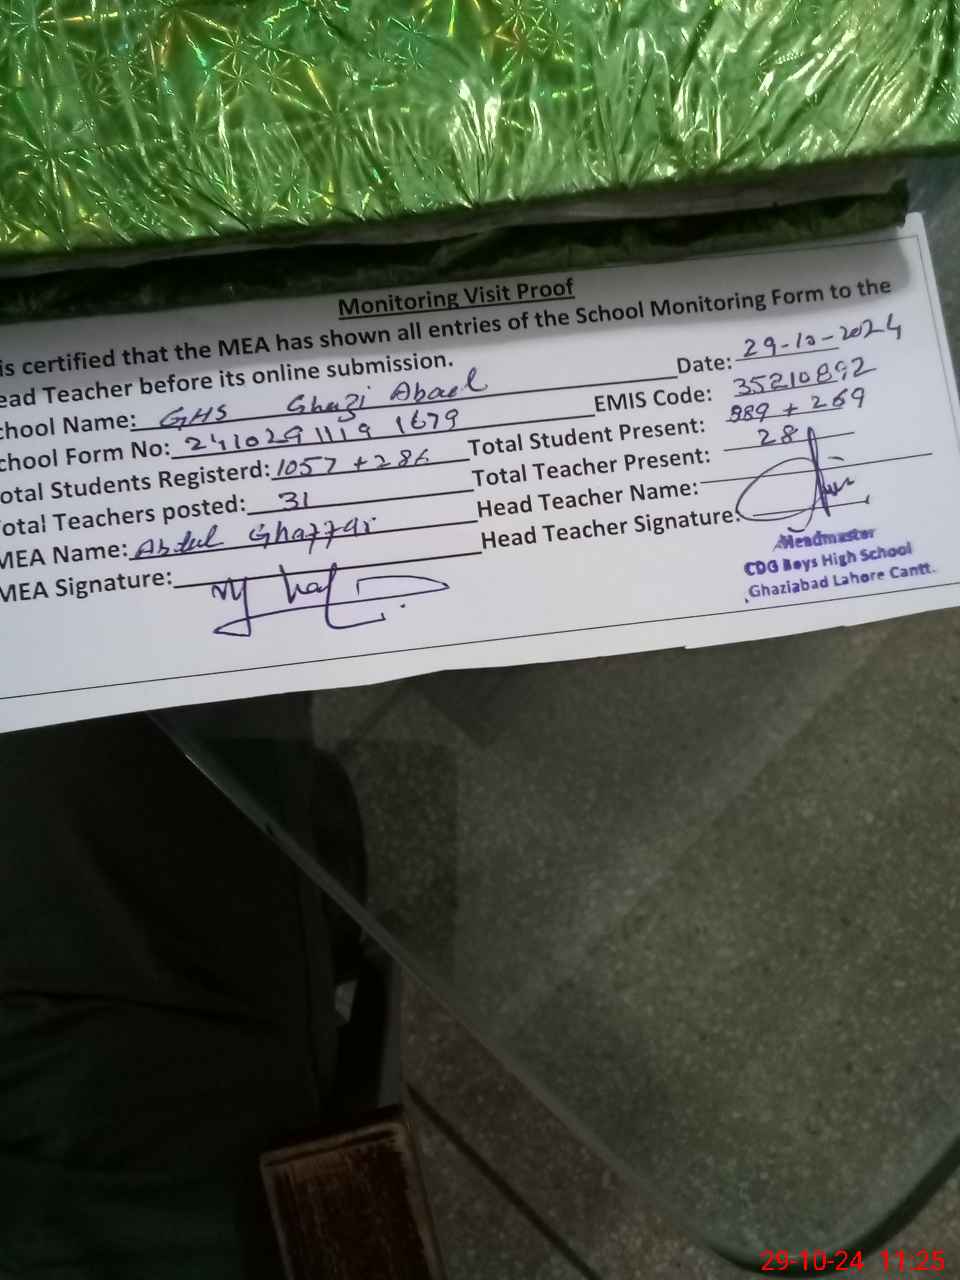 Monitoring Visit Proof
is certified that the MEA has shown all entries of the School Monitoring Form to the
ead Teacher before its online submission.
Date: 29-10-2024
chool Name: GHS Ghazi Abad
EMIS Code: 35210892
chool Form No: 241029 1119 1679
Total Student Present: 989 + 269
otal Students Registerd: 1057 + 286
Total Teacher Present: 28
otal Teachers posted: 31
Head Teacher Name:
MEA Name: Abdul Ghaffar
Head Teacher Signature:
MEA Signature:
Headmaster
CDG Boys High School
Ghaziabad Lahore Cantt.
29-10-24 11:25